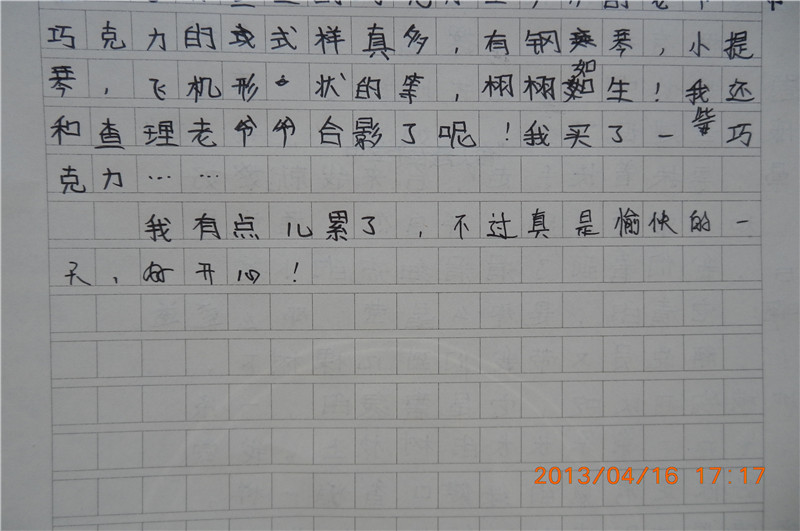 巧克力的式样真多，有钢琴，小提
琴，飞机形状的等，栩栩如生！我还
和查理老爷爷合影了呢！我买了一些巧
克力……
我有点儿累了，不过真是愉快的一
天，好开心！
2013/04/16 17:17